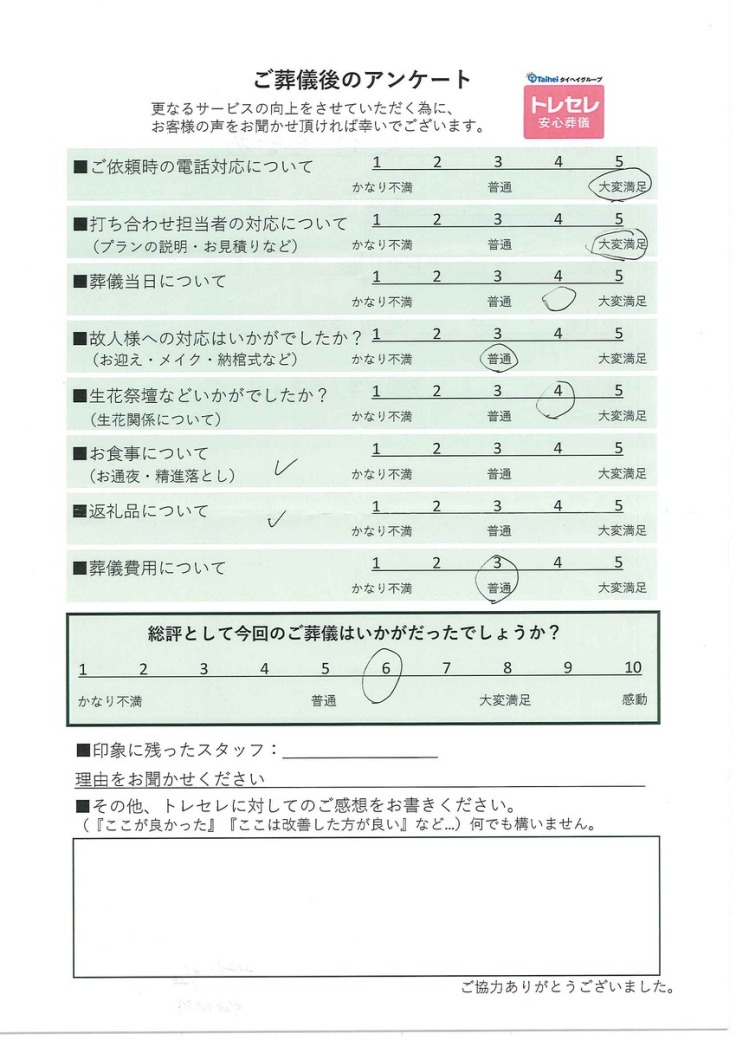 ご葬儀後のアンケート
Taihei タイヘイグループ
トレセレ
安心葬儀
更なるサービスの向上をさせていただく為に、
お客様の声をお聞かせ頂ければ幸いでございます。
■ご依頼時の電話対応について 1 2 3 4 5
かなり不満 普通 大変満足
■打ち合わせ担当者の対応について 1 2 3 4 5
（プランの説明・お見積りなど） かなり不満 普通 大変満足
■葬儀当日について 1 2 3 4 5
かなり不満 普通 大変満足
■故人様への対応はいかがでしたか？ 1 2 3 4 5
（お迎え・メイク・納棺式など） かなり不満 普通 大変満足
■生花祭壇などいかがでしたか？ 1 2 3 4 5
（生花関係について） かなり不満 普通 大変満足
■お食事について 1 2 3 4 5
（お通夜・精進落とし） ✓ かなり不満 普通 大変満足
■返礼品について ✓ 1 2 3 4 5
かなり不満 普通 大変満足
■葬儀費用について 1 2 3 4 5
かなり不満 普通 大変満足
総評として今回のご葬儀はいかがだったでしょうか？
1 2 3 4 5 6 7 8 9 10
かなり不満 普通 大変満足 感動
■印象に残ったスタッフ：
理由をお聞かせください
■その他、トレセレに対してのご感想をお書きください。
（『ここが良かった』『ここは改善した方が良い』など...）何でも構いません。
ご協力ありがとうございました。